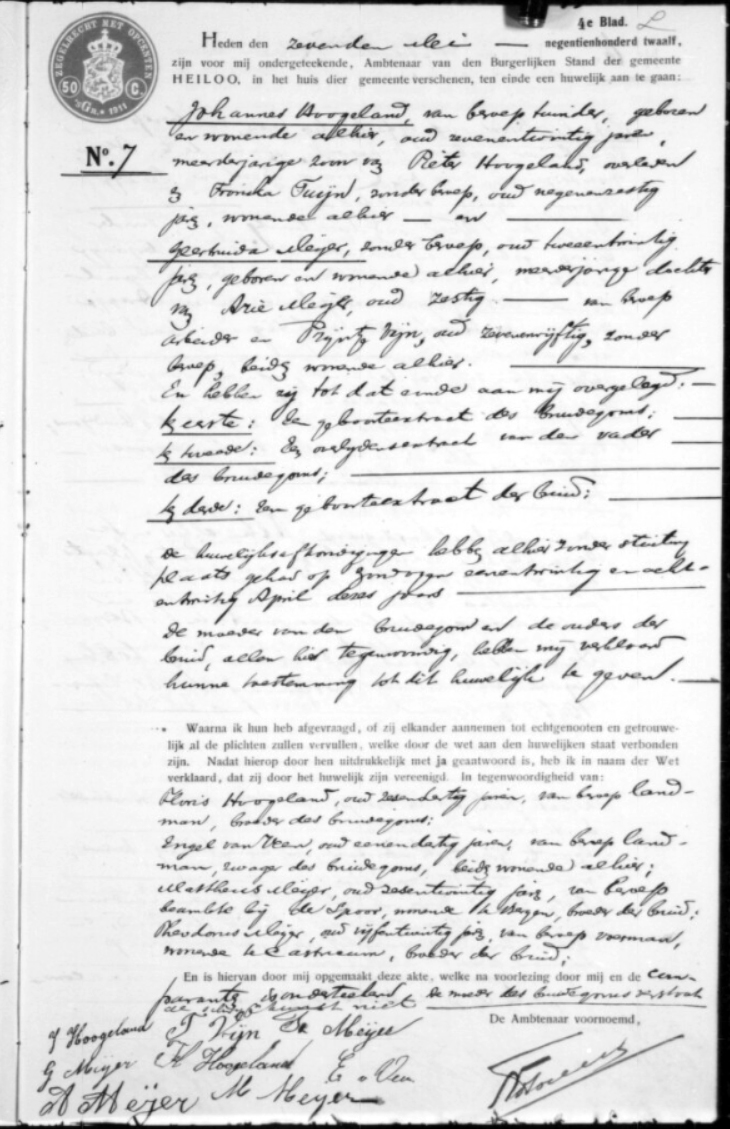 4e Blad.
ZEGELRECHT MET OPCENTEN
50 C.
1911
Heden den zevenden Mei — negentienhonderd twaalf,
zijn voor mij ondergeteekende, Ambtenaar van den Burgerlijken Stand der gemeente
HEILOO, in het huis dier gemeente verschenen, ten einde een huwelijk aan te gaan:
No. 7
Johannes Hoogeland, van beroep tuinder, geboren
en wonende alhier, oud zevenentwintig jaren,
meerderjarige zoon van Pieter Hoogeland, overleden
en Tuijn, zonder beroep, oud negenenzestig
jaren, wonende alhier — en —
Geertruida Meijer, zonder beroep, oud tweeentwintig
jaren, geboren en wonende alhier, meerderjarige dochter
van Arie Meijer, oud zestig — van beroep
arbeider en Vijn, oud zevenenvijftig, zonder
beroep, beiden wonende alhier. —
En hebben zij tot dat einde aan mij overgelegd: —
ten eerste: Een geboorteextract des bruidegoms; —
ten tweede: Een overlijdensextract van den vader —
des bruidegoms; —
ten derde: Een geboorteextract der bruid: —
De huwelijksafkondigingen hebben alhier zonder stuiting
plaats gehad op zondagen eenentwintig en acht-
entwintig April dezes jaars —
De moeder van den bruidegom en de ouders der
bruid, allen hier tegenwoordig, hebben mij verklaard
hunne toestemming tot dit huwelijk te geven. —
Waarna ik hun heb afgevraagd, of zij elkander aannemen tot echtgenooten en getrouwe-
lijk al de plichten zullen vervullen, welke door de wet aan den huwelijken staat verbonden
zijn. Nadat hierop door hen uitdrukkelijk met ja geantwoord is, heb ik in naam der Wet
verklaard, dat zij door het huwelijk zijn vereenigd. In tegenwoordigheid van:
Floris Hoogeland, oud jaren, van beroep land-
man, broeder des bruidegoms;
Engel van Veen, oud eenendertig jaren, van beroep land-
man, zwager des bruidegoms, beiden wonende alhier;
Mattheus Meijer, oud zesentwintig jaren, van beroep
beambte bij de Spoor, wonende te Bergen, broeder der bruid;
Theodorus Meijer, oud vijfentwintig jaren, van beroep voerman,
wonende te Castricum, broeder der bruid;
En is hiervan door mij opgemaakt deze akte, welke na voorlezing door mij en de com-
paranten is onderteekend de moeder des bruidegoms verklaarde
De Ambtenaar voornoemd,
J Hoogeland
T Vijn
Meijer
G Meijer
Hoogeland
E v Veen
A Meijer
M Meijer